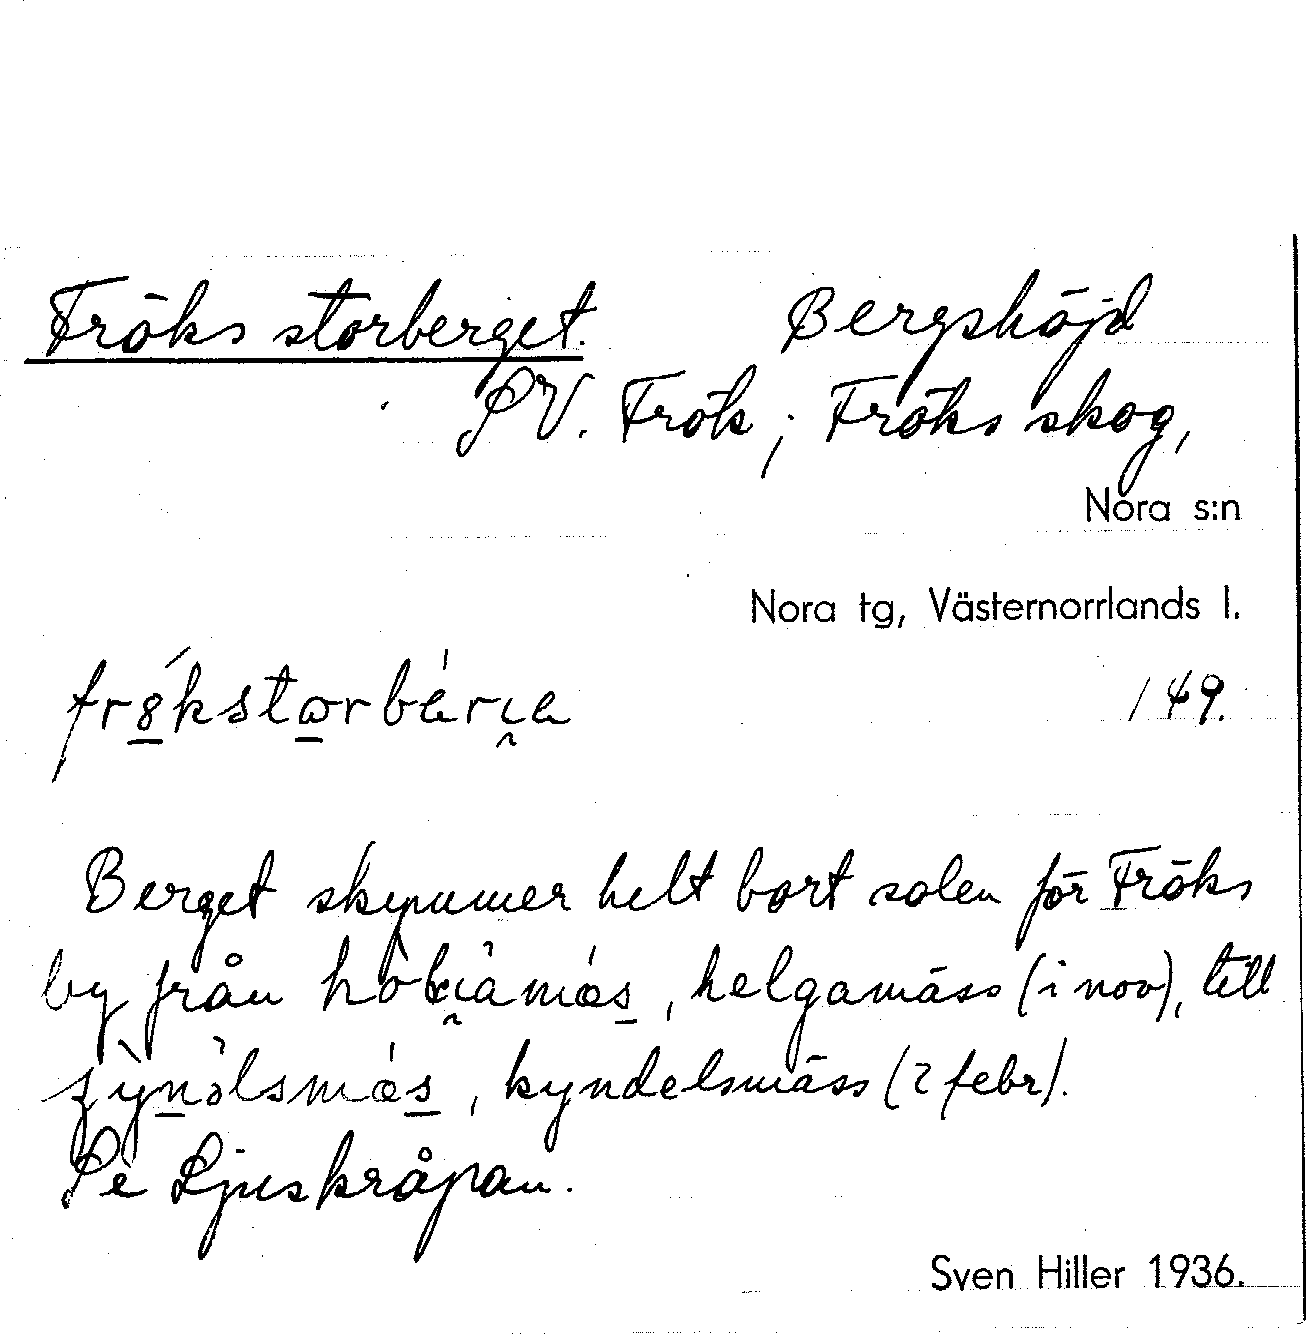 Fröks storberget. Bergshöjd
SV. Frök ; Fröks skog,
Nora s:n
Nora tg, Västernorrlands l.
149.
Berget skymmer helt bort solen för Fröks
by från , helgamäss (i nov), till
, kyndelsmäss (2 febr).
Se Ljuskråpan.
Sven Hiller 1936.